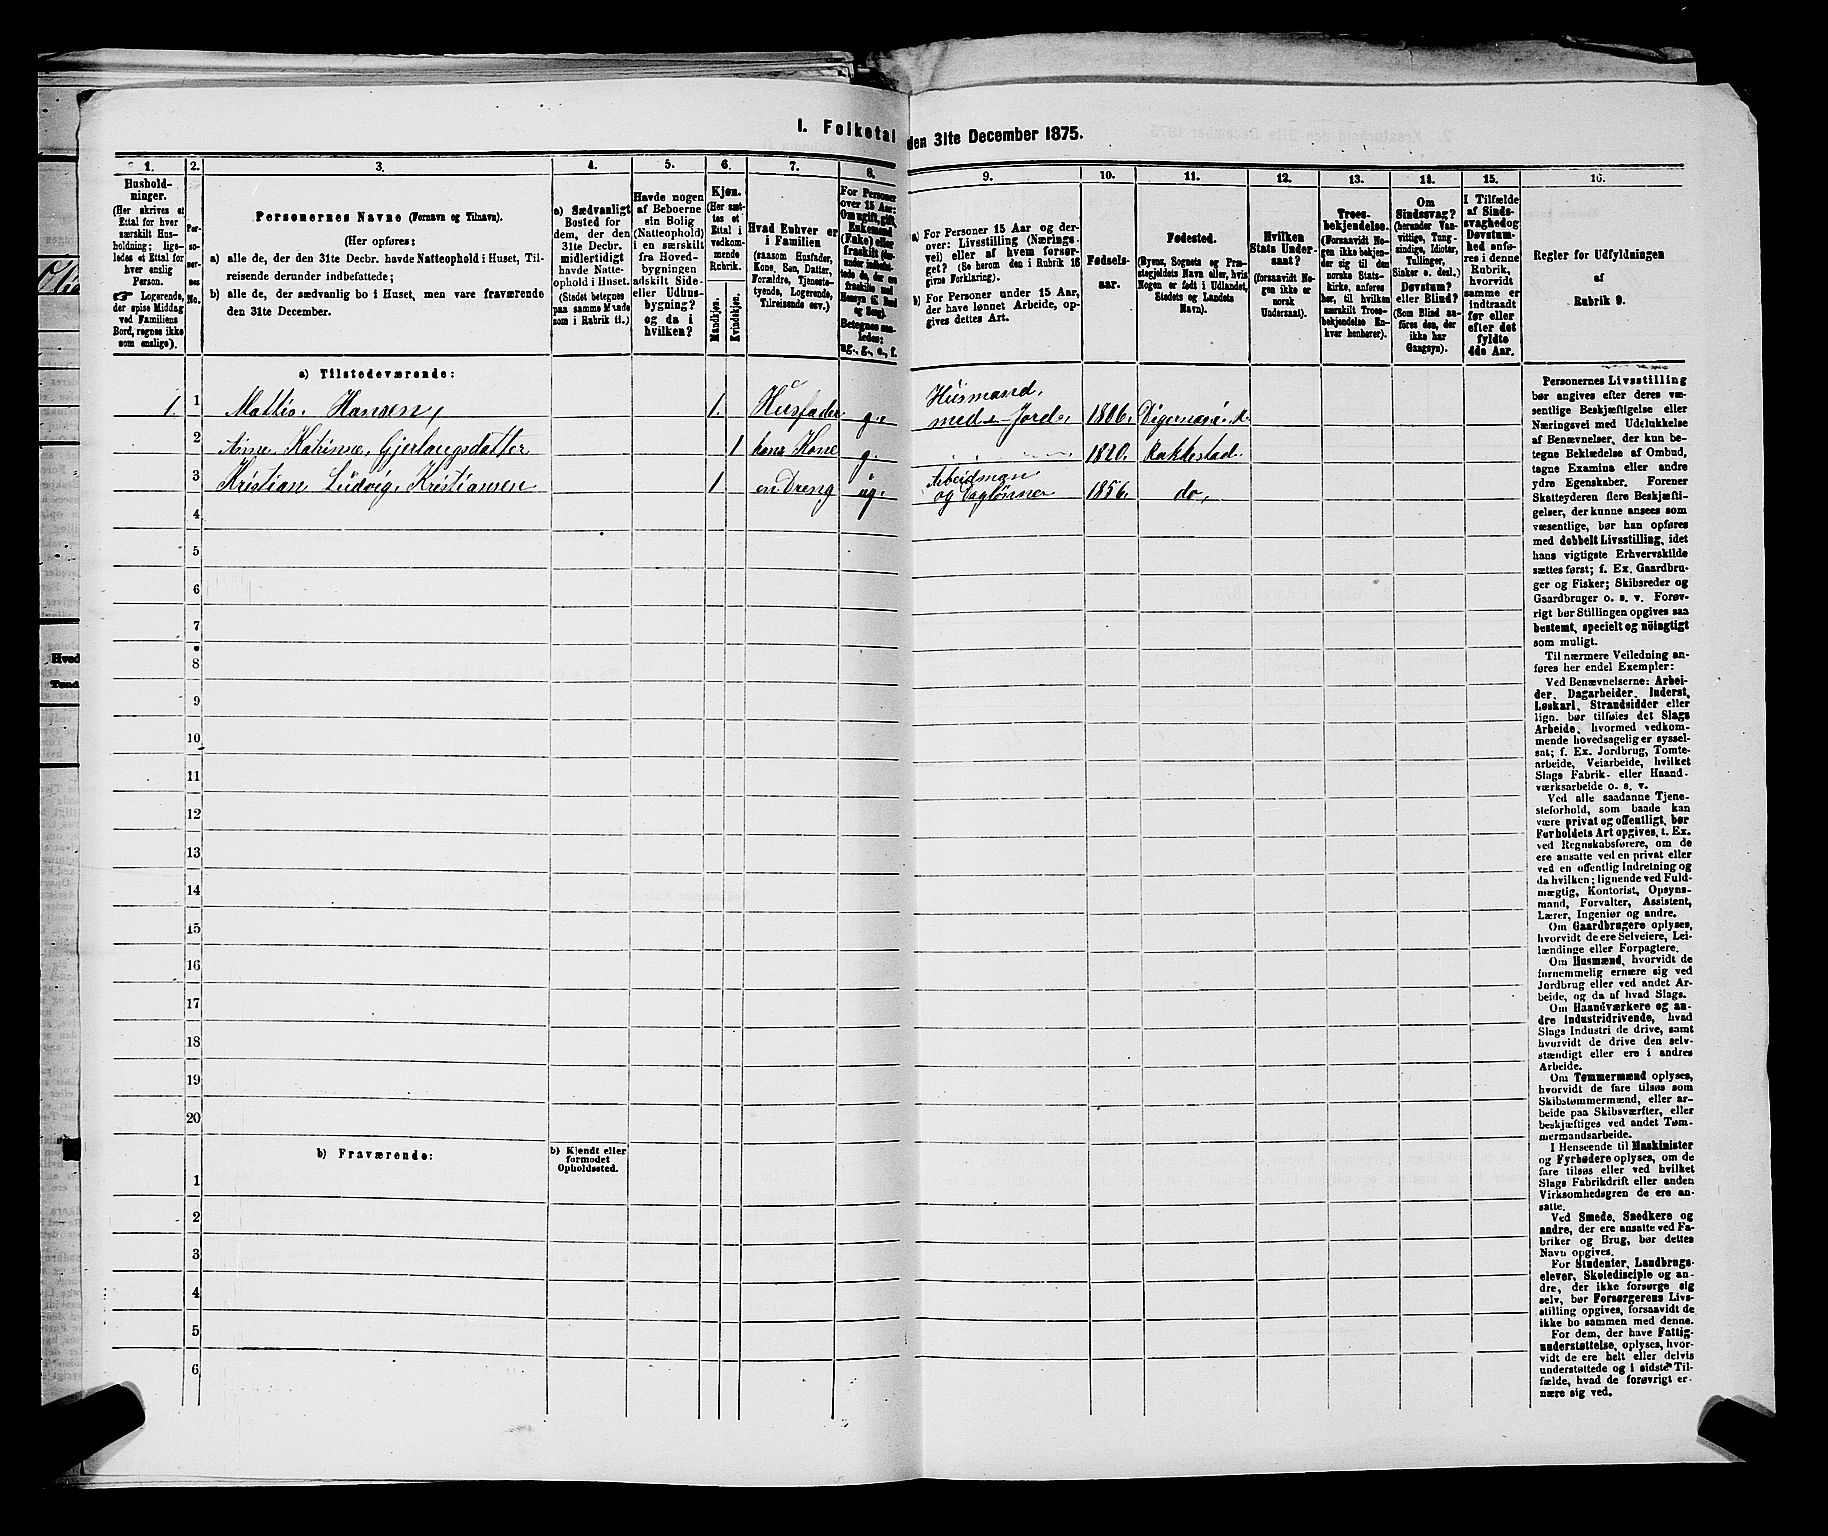 I. Folketal den 31te December 1875.
1. 2. 3. 4. 5. 6. 7. 8. 9. 10. 11. 12. 13. 14. 15. 16.
Hushold-
ninger.
(Her skrives et
Ettal for hver
særskilt Hus-
holdning; lige-
ledes et Ettal for
hver enslig
Person.
Logerende,
der spise Middag
ved Familiens
Bord, regnes ikke
som enslige).
Per-
so-
ner-
nes
No.
Personernes Navne (Fornavn og Tilnavn).
(Her opføres:
a) alle de, der den 31te Decbr. havde Natteophold i Huset, Til-
reisende derunder indbefattede;
b) alle de, der sædvanlig bo i Huset, men vare fraværende
den 31te December.
a) Sædvanligt
Bosted for
dem, der den
31te Decbr.
midlertidigt
havde Natte-
ophold i Huset.
(Stedet betegnes
paa samme Maade
som i Rubrik 11.)
Havde nogen
af Beboerne
sin Bolig
(Natteophold)
i en særskilt
fra Hoved-
bygningen
adskilt Side-
eller Udhus-
bygning?
og da i
hvilken?
Kjøn.
(Her sæt-
tes et
Ettal i
vedkom-
mende
Rubrik.
Mandkjøn.
Kvindekjøn.
Hvad Enhver er
i Familien
(saasom Husfader,
Kone, Søn, Datter,
Forældre, Tjeneste-
tyende, Logerende,
Tilreisende osv.)
For Personer
over 15 Aar:
Om ugift, gift,
Enkemand
(Enke) eller
fraskilt
Betegnes saa-
ledes:
ug., g., e., f.
a) For Personer 15 Aar og der-
over: Livsstilling (Nærings-
vei) eller af hvem forsør-
get? (Se herom den i Rubrik 16
givne Forklaring).
b) For Personer under 15 Aar,
der have lønnet Arbeide, op-
gives dettes Art.
Fødsels-
aar.
Fødested.
(Byens, Sognets og Præ-
stegjeldets Navn eller, hvis
Nogen er født i Udlandet,
Stedets og Landets
Navn).
Hvilken
Stats Under-
saat?
(forsaavidt No-
gen ikke er
norsk
Undersaat).
Troes-
bekjendelse.
(Forsaavidt No-
gen ikke bekjen-
der sig til den
norske Stats-
kirke, anføres
her, til hvilken
særskilt Troes-
bekjendelse En-
hver henhører).
Om
Sindssvag?
(herunder Van-
vittige, Tung-
sindige, Idioter,
Tullinger,
Sinker o. desl.)
Døvstum?
eller Blind?
(Som Blind an-
føres den, der
ikke har
Gangsyn).
I Tilfælde
af Sinds-
svaghed og
Døvstum-
hed anfø-
res i denne
Rubrik,
hvorvidt
samme er
indtraadt
før eller
efter det
fyldte
4de Aar.
Regler for Udfyldningen
af
Rubrik 9.
a) Tilstedeværende:
1. 1 Mattis Hansen, 1. Husfader g. Husmand med Jord 1806.
2 Anne Katrine Gjerlaugsdatter 1 hans Kone g. 1820. Rakkestad
3 Kristian Ludvig Kristiansen 1 en Dreng ug. Arbeidman og Daglønner 1856. do,
4
5
6
7
8
9
10
11
12
13
14
15
16
17
18
19
20
b) Fraværende:
b) Kjendt eller
formodet
Opholdssted.
1
2
3
4
5
6
Personernes Livsstilling
bør angives efter deres væ-
sentlige Beskjæftigelse eller
Næringsvei med Udelukkelse
af Benævnelser, der kun be-
tegne Beklædelse af Ombud,
tagne Examina eller andre
ydre Egenskaber. Forener
Skatteyderen flere Beskjæfti-
gelser, der kunne ansees som
væsentlige, bør han opføres
med dobbelt Livsstilling, idet
hans vigtigste Erhvervskilde
sættes først; f. Ex. Gaardbru-
ger og Fisker; Skibsreder og
Gaardbruger o. s. v. Forøv-
rigt bør Stillingen opgives saa
bestemt, specielt og nöiagtigt
som muligt.
Til nærmere Veiledning an-
føres her endel Exempler:
Ved Benævnelserne: Arbei-
der, Dagarbeider, Inderst,
Løskarl, Strandsidder eller
lign. bør tilføies det Slags
Arbeide, hvormed vedkom-
mende hovedsagelig er syssel-
sat; f. Ex. Jordbrug, Tomte-
arbeide, Veiarbeide, hvilket
Slags Fabrik- eller Haand-
værksarbeide o. s. v.
Ved alle saadanne Tjene-
steforhold, som baade kan
være privat og offentligt, bør
Forholdets Art opgives, t. Ex.
ved Regnskabsførere, om de
ere ansatte ved en privat eller
ved en offentlig Indretning og
da hvilken; lignende ved Fuld-
mægtig, Kontorist, Opsyns-
mand, Forvalter, Assistent,
Lærer, Ingeniør og andre.
Om Gaardbrugere oplyses,
hvorvidt de ere Selveiere, Lei-
lændinge eller Forpagtere.
Om Husmænd, hvorvidt de
fornemmelig ernære sig ved
Jordbrug eller ved andet Ar-
beide, og da af hvad Slags.
Om Haandværkere og an-
dre Industridrivende, hvad
Slags Industri de drive, samt
hvorvidt de drive den selv-
stændigt eller ere i andres
Arbeide.
Om Tømmermænd oplyses,
hvorvidt de fare tilsøs som
Skibstømmermænd, eller ar-
beide paa Skibsværfter, eller
beskjæftiges ved andet Tøm-
mermandsarbeide.
I Henseende til Maskinister
og Fyrbødere oplyses, om de
fare tilsøs eller ved hvilket
Slags Fabrikdrift eller anden
Virksomhedsgren de ere an-
satte.
Ved Smede, Snedkere og
andre, der ere ansatte ved Fa-
briker og Brug, bør dettes
Navn opgives.
For Studenter, Landbrugs-
elever, Skoledisciple og an-
dre, der ikke forsørge sig
selv, bør Forsørgerens Livs-
stilling opgives, forsaavidt de
ikke bo sammen med denne.
For dem, der have Fattig-
understøttelse, oplyses, hvor-
vidt de ere helt eller delvis
understøttede og i sidste Til-
fælde, hvad de forøvrigt er-
nære sig ved.